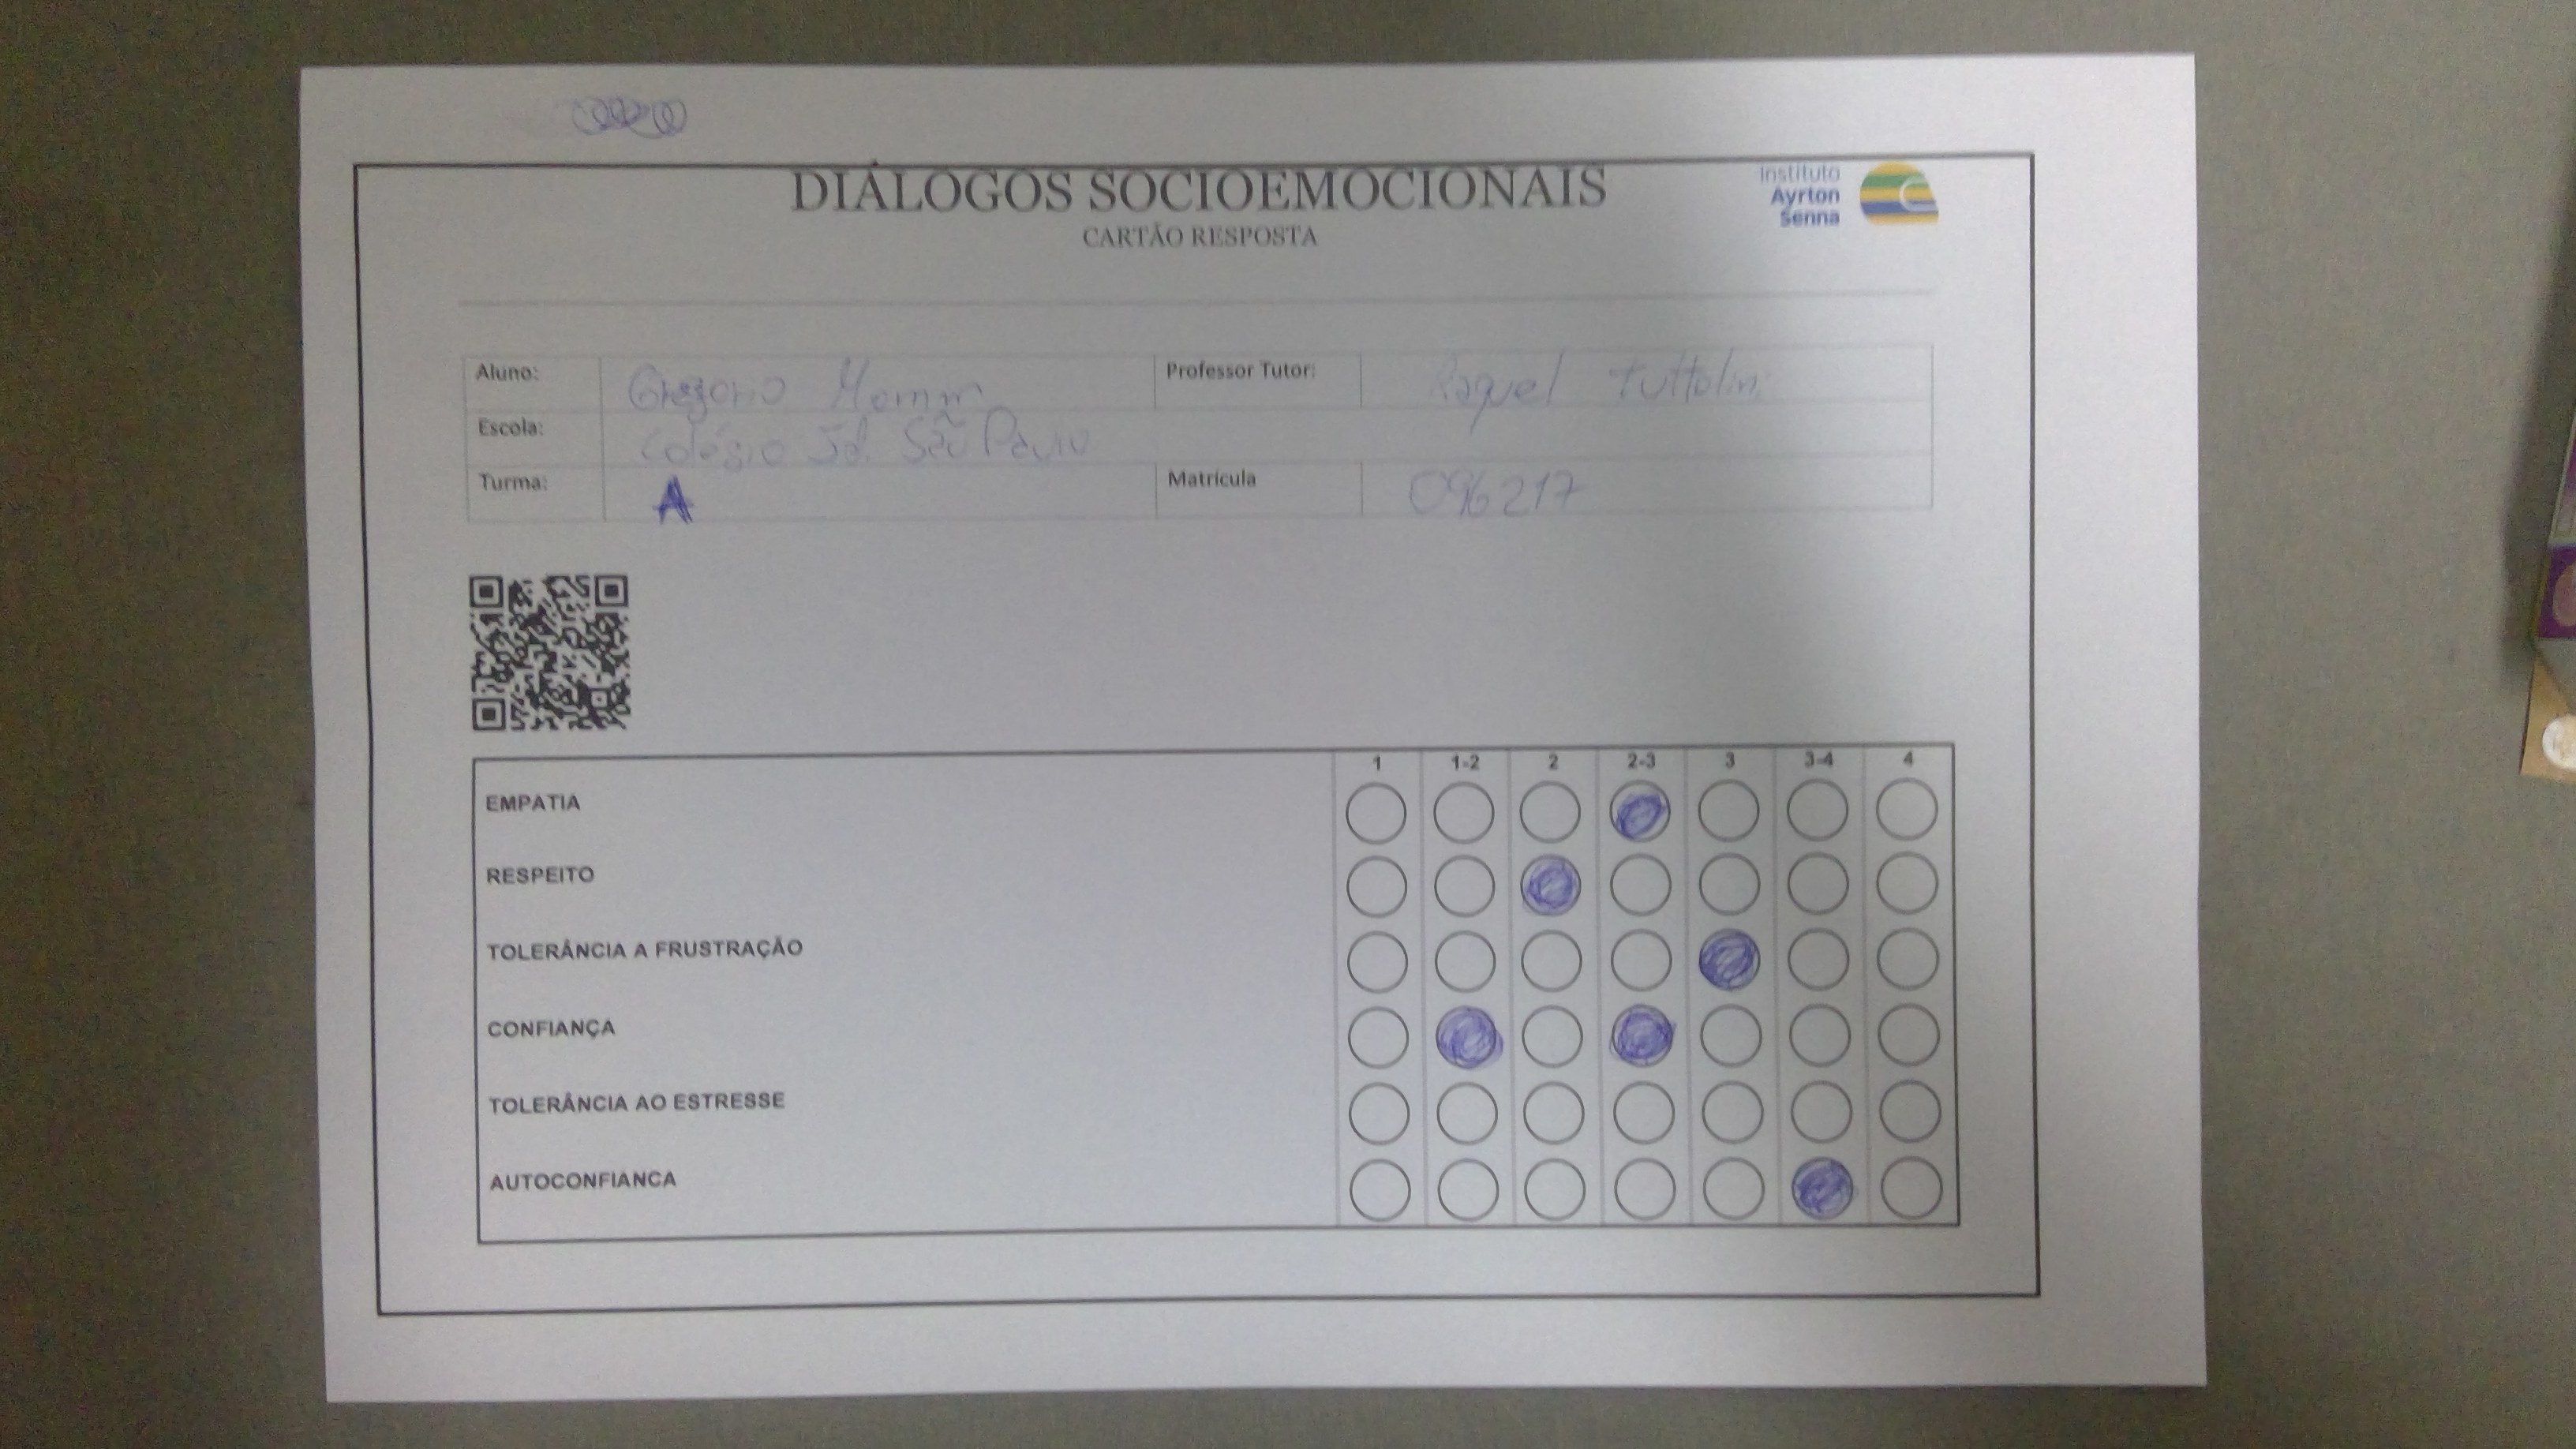 DIÁLOGOS SOCIOEMOCIONAIS
CARTÃO RESPOSTA
Instituto
Ayrton
Senna
Aluno: Gregorio Professor Tutor: Raquel
Escola: Colégio Jd. São Paulo
Turma: A Matrícula 096217
1 1-2 2 2-3 3 3-4 4
EMPATIA
RESPEITO
TOLERÂNCIA A FRUSTRAÇÃO
CONFIANÇA
TOLERÂNCIA AO ESTRESSE
AUTOCONFIANCA